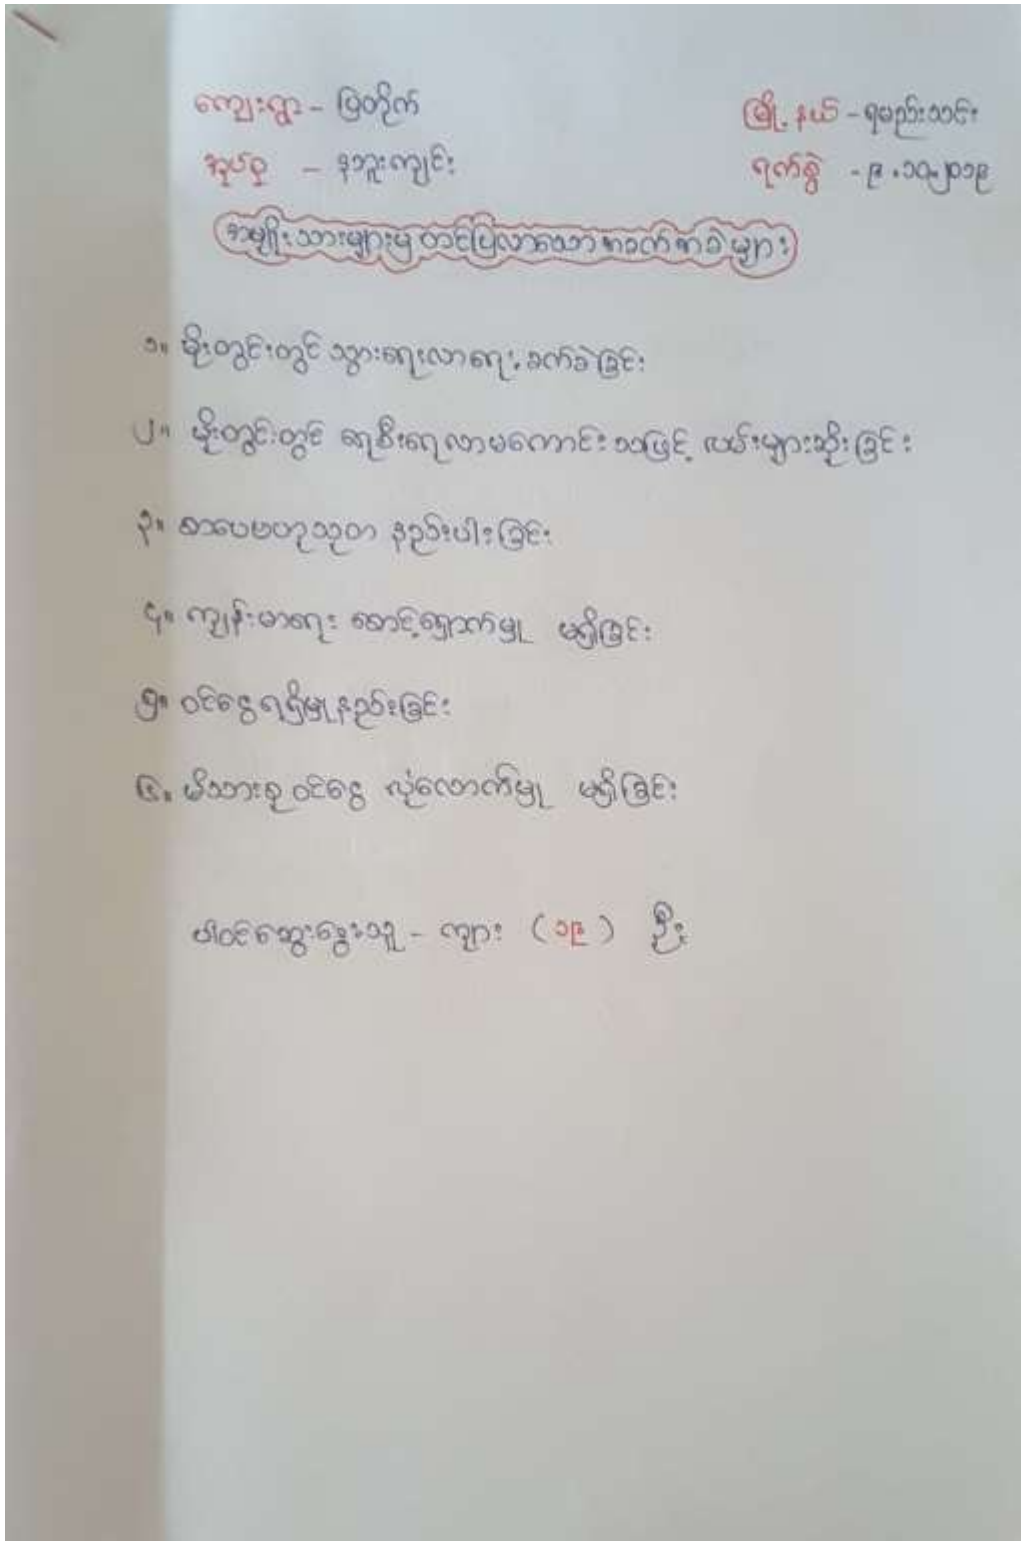 ကျေးရွာ - မြတိုက်
မြို့နယ် - ရမည်းသင်း
အုပ်စု - နဘူးကျင်း
ရက်စွဲ - ၉.၁၀.၂၀၁၉
အမျိုးသားများမှ တင်ပြလာသောအခက်အခဲများ
၁။ မိုးတွင်းတွင် သွားရေးလာရေး ခက်ခဲခြင်း
၂။ မိုးတွင်းတွင် ရေစီးရေလာမကောင်းသဖြင့် လမ်းများဆိုးခြင်း
၃။ စာပေဗဟုသုတ နည်းပါးခြင်း
၄။ ကျန်းမာရေး စောင့်ရှောက်မှု မရှိခြင်း
၅။ ဝင်ငွေရရှိမှုနည်းခြင်း
၆။ မိသားစုဝင်ငွေ လုံလောက်မှု မရှိခြင်း
ပါဝင်ဆွေးနွေးသူ - ကျား (၁၉) ဦး